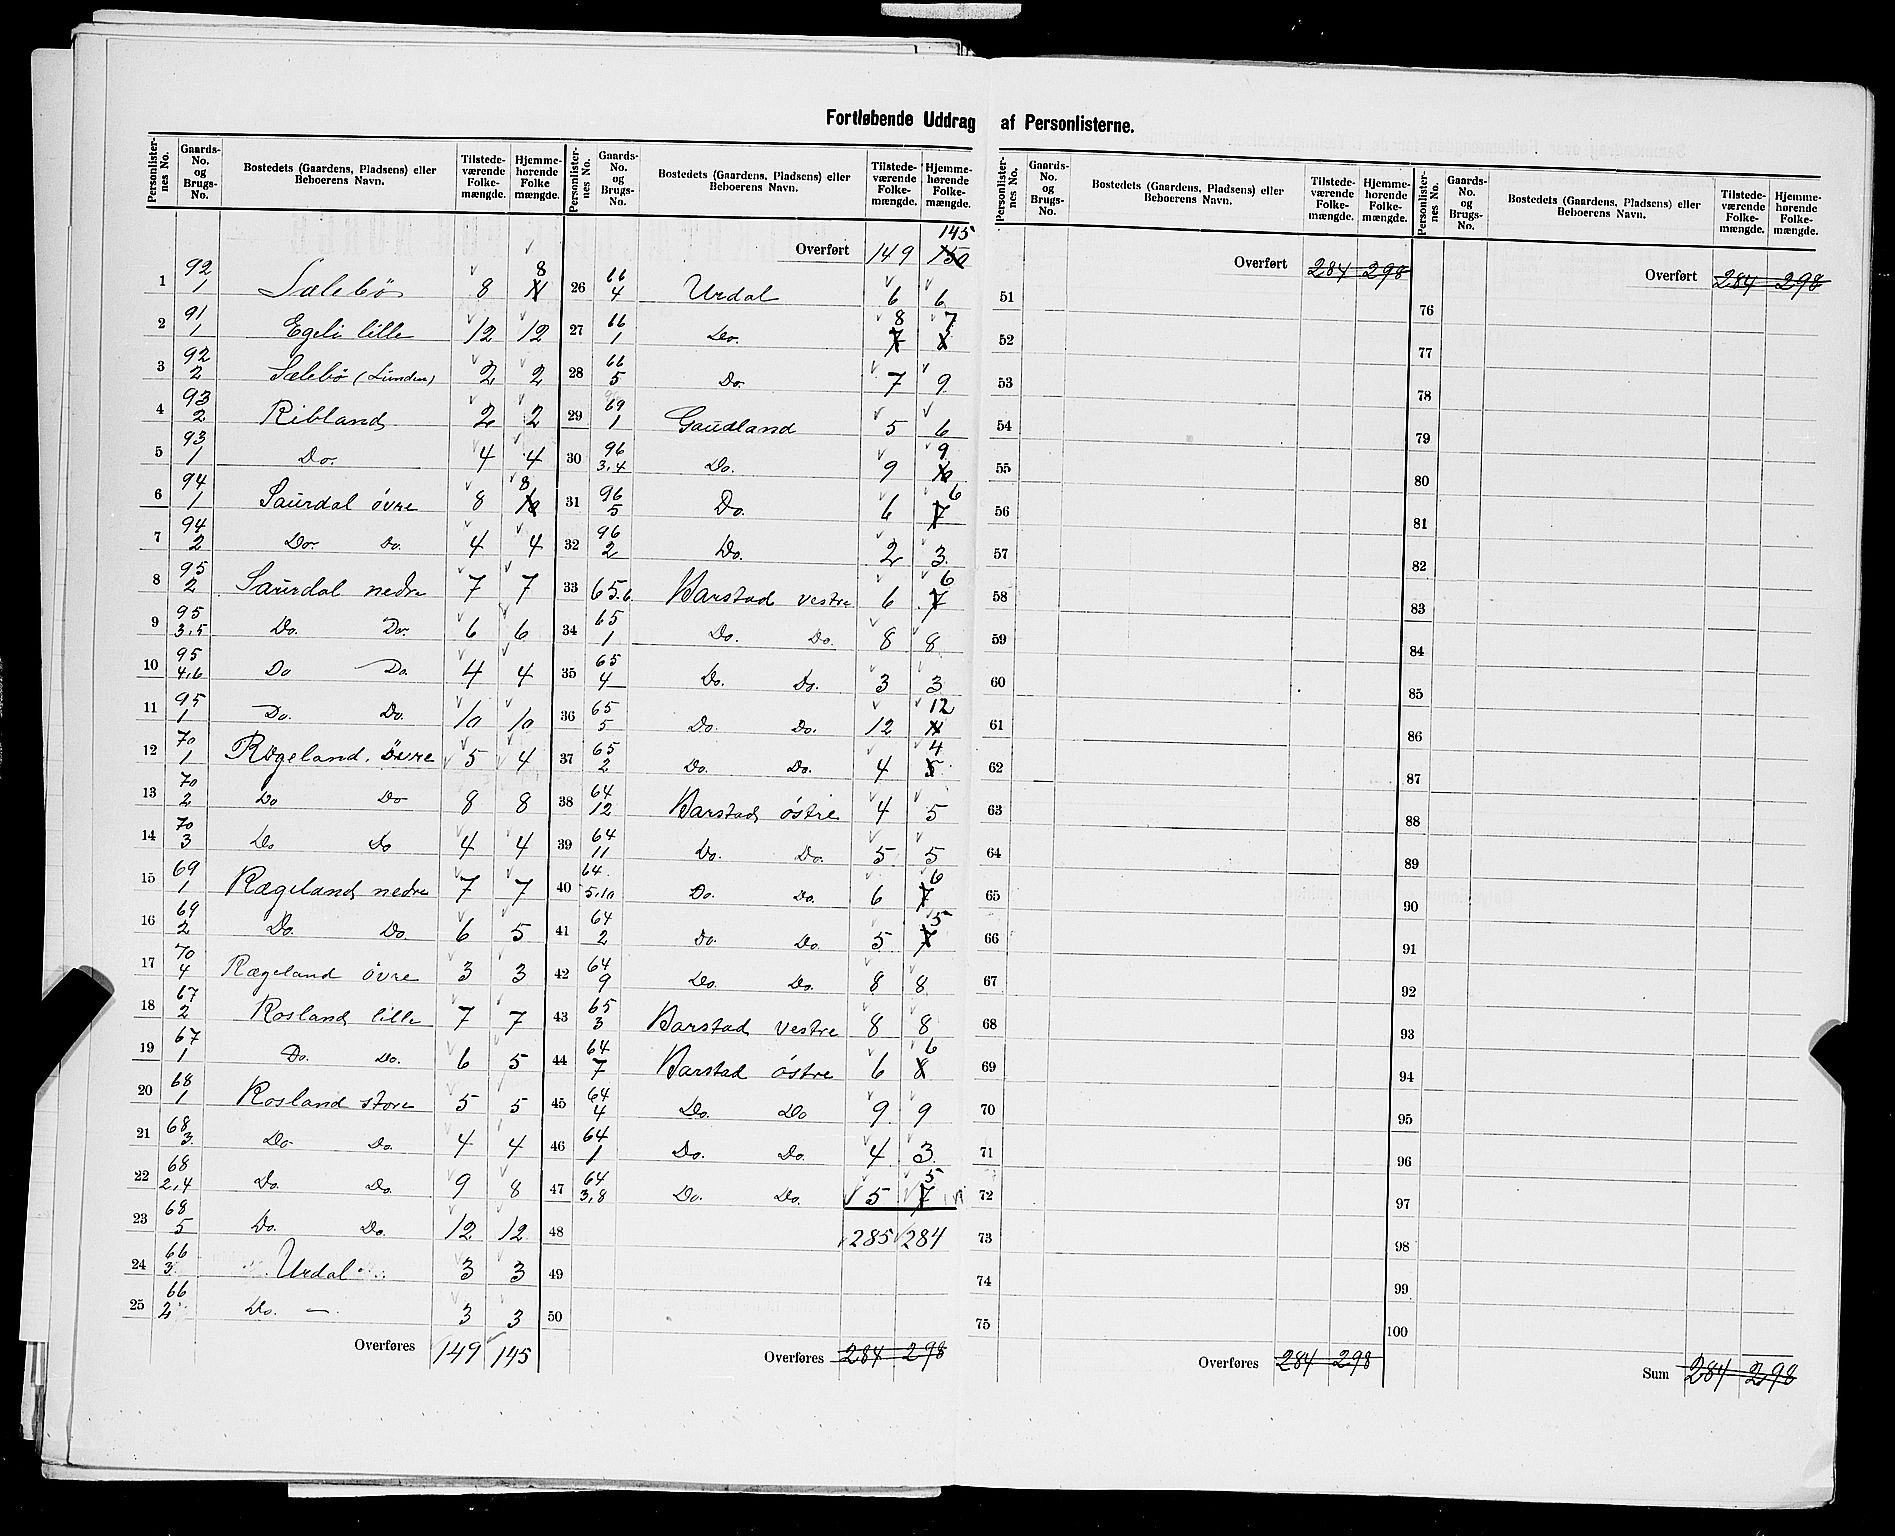 Fortløbende Uddrag af Personlisterne.
Personlister-nes No. | Gaards-No. og Brugs-No. | Bostedets (Gaardens, Pladsens) eller Beboerens Navn. | Tilstede-værende Folke-mængde. | Hjemme-hørende Folke mængde.
1 | 92/1 | Sælebø | 8 | 8
2 | 91/1 | Egeli lille | 12 | 12
3 | 92/2 | Sælebø (Lunden) | 2 | 2
4 | 93/2 | Ribland | 2 | 2
5 | 93/1 | Do. | 4 | 4
6 | 94/1 | Saurdal øvre | 8 | 8 10
7 | 94/2 | Do. Do. | 4 | 4
8 | 95/2 | Saurdal nedre | 7 | 7
9 | 95/3,5 | Do. Do. | 6 | 6
10 | 95/4,6 | Do Do. | 4 | 4
11 | 95/1 | Do. Do. | 10 | 10
12 | 70/1 | Rægeland. øvre | 5 | 4
13 | 70/2 | Do Do | 8 | 8
14 | 70/3 | Do Do | 4 | 4
15 | 69/1 | Rægeland nedre | 7 | 7
16 | 69/2 | Do. Do. | 6 | 5
17 | 70/4 | Rægeland øvre | 3 | 3
18 | 67/2 | Rosland lille | 7 | 7
19 | 67/1 | Do. Do. | 6 | 5
20 | 68/1 | Rosland store | 5 | 5
21 | 68/3 | Do Do. | 4 | 4
22 | 68/2,4 | Do. Do. | 9 | 8
23 | 68/5 | Do. Do. | 12 | 12
24 | 66/3 | Urdal | 3 | 3
25 | 66/2 | Do. — | 3 | 3
Overføres | 149 | 145
Personlister-nes No. | Gaards-No. og Brugs-No. | Bostedets (Gaardens, Pladsens) eller Beboerens Navn. | Tilstede-værende Folke-mængde. | Hjemme-hørende Folke-mængde.
Overført | 149 | 145 150
26 | 66/4 | Urdal | 6 | 6
27 | 66/1 | Do. | 8 7 | 7
28 | 66/5 | Do. | 7 | 9
29 | 69/1 | Gaudland | 5 | 6
30 | 96/3,4 | Do. | 9 | 9 10
31 | 96/5 | Do. | 6 | 6 7
32 | 96/2 | Do. | 2 | 3
33 | 65.6 | Barstad vestre | 6 | 6 7
34 | 65/1 | Do. Do. | 8 | 8
35 | 65/4 | Do. Do. | 3 | 3
36 | 65/5 | Do. Do. | 12 | 12
37 | 65/2 | Do. Do. | 4 | 4 5
38 | 64/12 | Barstad østre | 4 | 5
39 | 64/11 | Do. Do. | 5 | 5
40 | 64/5.10 | Do. Do. | 6 | 6 7
41 | 64/2 | Do. Do. | 5 | 5 7
42 | 64/9 | Do. Do. | 8 | 8
43 | 65/3 | Barstad vestre | 8 | 8
44 | 64/7 | Barstad østre | 6 | 6 8
45 | 64/4 | Do. Do | 9 | 9
46 | 64/1 | Do. Do. | 4 | 3
47 | 64/3,8 | Do. Do. | 5 | 5 7
48 | 285 | 284
49
50
Overføres | 284 | 298
Personlister-nes No. | Gaards-No. og Brugs-No. | Bostedets (Gaardens, Pladsens) eller Beboerens Navn. | Tilstede-værende Folke-mængde. | Hjemme-hørende Folke-mængde.
Overført | 284 | 298
51
52
53
54
55
56
57
58
59
60
61
62
63
64
65
66
67
68
69
70
71
72
73
74
75
Overføres | 284 | 298
Personlister-nes No. | Gaards-No. og Brugs-No. | Bostedets (Gaardens, Pladsens) eller Beboerens Navn. | Tilstede-værende Folke-mængde. | Hjemme-hørende Folke-mængde.
Overført | 284 | 298
76
77
78
79
80
81
82
83
84
85
86
87
88
89
90
91
92
93
94
95
96
97
98
99
100
Sum | 284 | 298